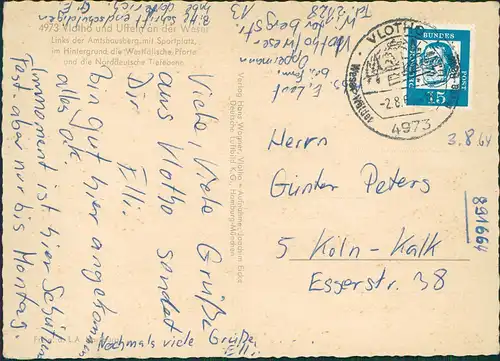 4973 Vlotho und Uffeln an der Weser
Links der Amtshausberg mit Sportplatz,
im Hintergrund die Westfälische Pforte
und die Norddeutsche Tiefebene
Viele, viele Grüße
aus Vlotho sendet
Dir
Elli.
Bin gut hier angekommen
alles ok.
Im Moment ist hier Schützen
Fest aber nur bis Montag.
Nochmals viele Grüße
Elli
Verlag Hans Wagner, Vlotho - Aufnahme: Joachim Ecke
Deutsche Luftbild K.G., Hamburg-München
VLOTHO
4973
DEUTSCHE
BUNDES
POST
15
3.8.64
891664
Herrn
Günter Peters
5 Köln-Kalk
Esserstr. 38